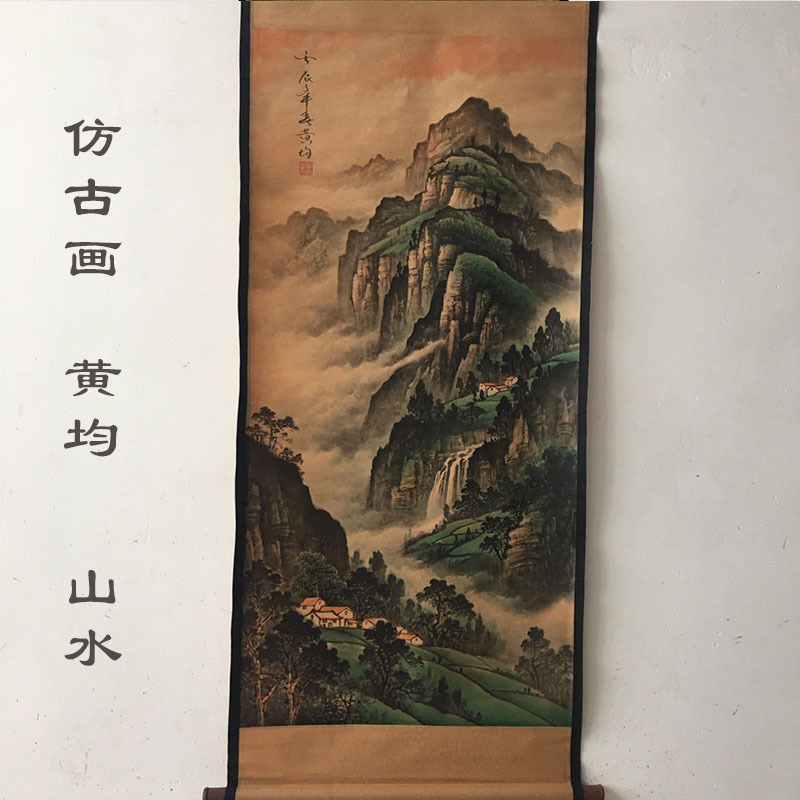 仿古画 黄均 山水
丙辰年春黄均